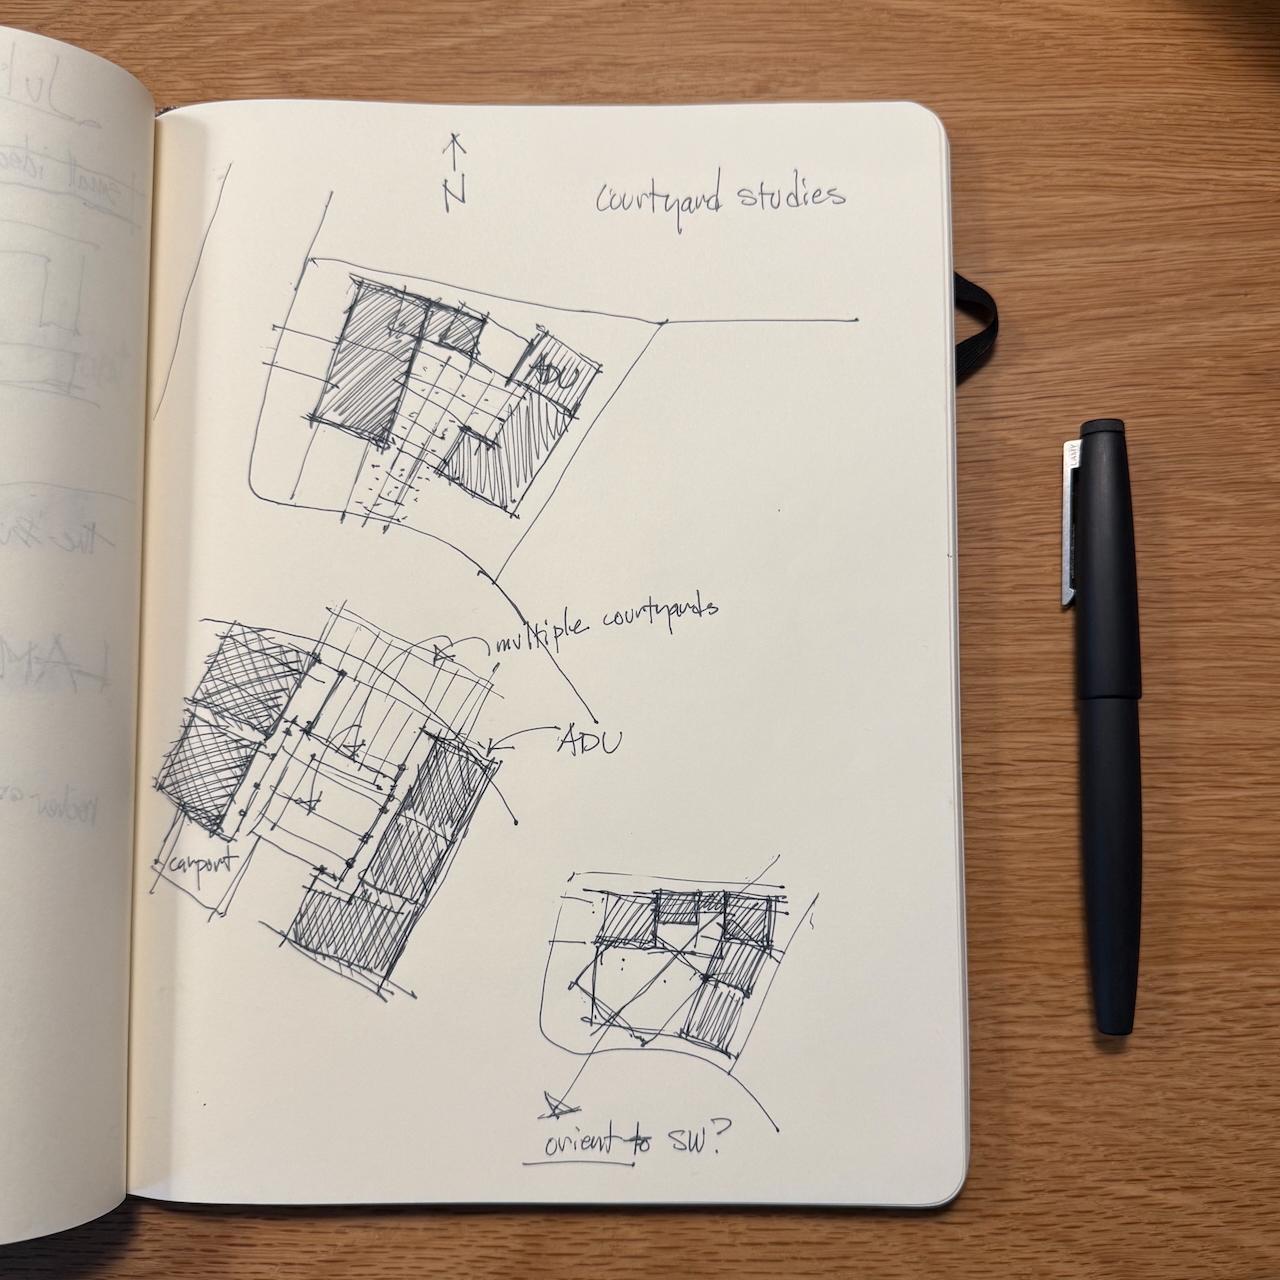 N
courtyard studies
ADU
multiple courtyards
ADU
carport
orient to SW?
LAMY